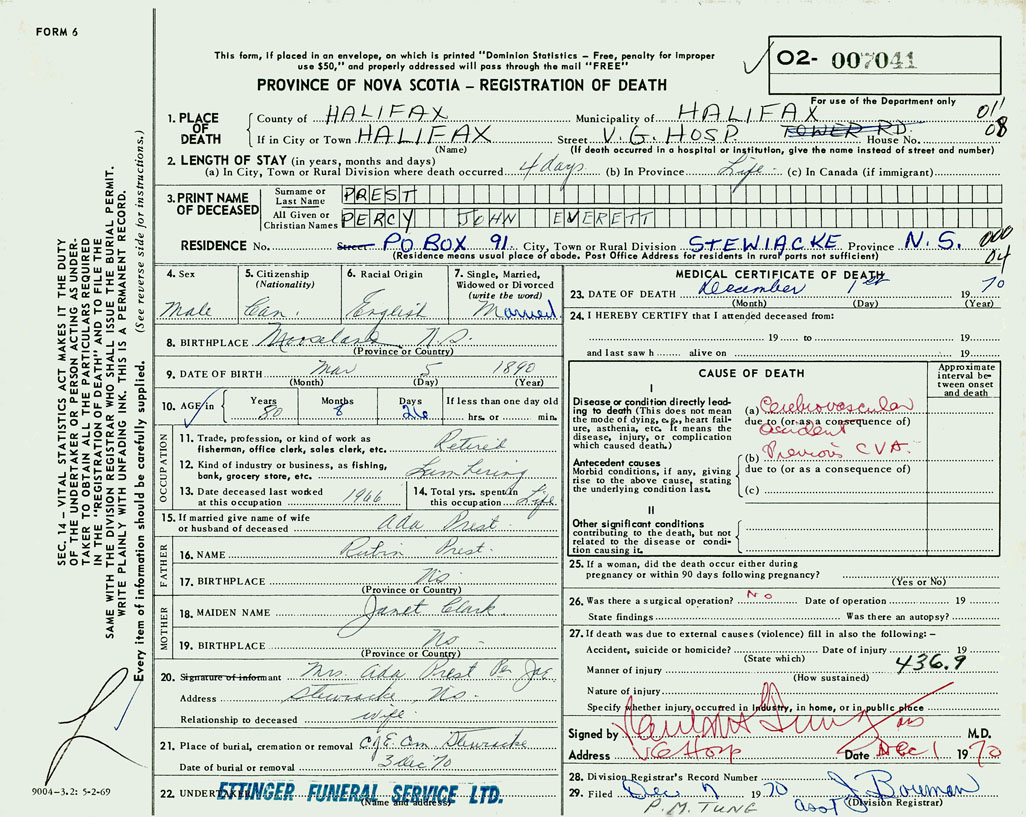 FORM 6
This form, if placed in an envelope, on which is printed "Dominion Statistics – Free, penalty for improper
use $50," and properly addressed will pass through the mail "FREE"
PROVINCE OF NOVA SCOTIA – REGISTRATION OF DEATH
02- 007041
For use of the Department only
011
08
1. PLACE OF DEATH
County of HALIFAX Municipality of HALIFAX
If in City or Town HALIFAX Street V.G. HOSP. TOWER RD. House No.
(Name) (If death occurred in a hospital or institution, give the name instead of street and number)
2. LENGTH OF STAY (in years, months and days)
(a) In City, Town or Rural Division where death occurred 4 days (b) In Province Life (c) In Canada (if immigrant)
3. PRINT NAME OF DECEASED
Surname or Last Name PREST
All Given or Christian Names PERCY JOHN EVERETT
RESIDENCE No. Street PO BOX 91. City, Town or Rural Division STEWIACKE Province N.S.
(Residence means usual place of abode. Post Office Address for residents in rural parts not sufficient)
000
04
4. Sex
Male
5. Citizenship
(Nationality)
Can.
6. Racial Origin
English
7. Single, Married, Widowed or Divorced
(write the word)
Married
8. BIRTHPLACE N.S.
(Province or Country)
9. DATE OF BIRTH Mar 5 1890
(Month) (Day) (Year)
10. AGE in Years Months Days If less than one day old
80 8 26 hrs. or min.
OCCUPATION
11. Trade, profession, or kind of work as
fisherman, office clerk, sales clerk, etc. Retired
12. Kind of industry or business, as fishing,
bank, grocery store, etc. Lumbering
13. Date deceased last worked
at this occupation 1966
14. Total yrs. spent in
this occupation Life
15. If married give name of wife
or husband of deceased Ada Prest
FATHER
16. NAME Prest.
17. BIRTHPLACE N.S.
(Province or Country)
MOTHER
18. MAIDEN NAME Janet Clark
19. BIRTHPLACE N.S.
(Province or Country)
20. Signature of informant Mrs. Ada Prest Per
Address Stewiacke, N.S.
Relationship to deceased wife
21. Place of burial, cremation or removal Cem Stewiacke
Date of burial or removal 3 Dec 70
22. UNDERTAKER ETTINGER FUNERAL SERVICE LTD.
(Name and address)
MEDICAL CERTIFICATE OF DEATH
23. DATE OF DEATH December 1st 19 70
(Month) (Day) (Year)
24. I HEREBY CERTIFY that I attended deceased from:
19 to 19
and last saw h alive on 19
CAUSE OF DEATH
Approximate interval between onset and death
I
Disease or condition directly leading to death (This does not
mean the mode of dying, e.g., heart failure, asthenia, etc. It means the
disease, injury, or complication
which caused death.)
(a) Cerebrovascular
due to (or as a consequence of)
accident
Antecedent causes
Morbid conditions, if any, giving
rise to the above cause, stating
the underlying condition last.
(b) Previous CVA.
due to (or as a consequence of)
(c)
II
Other significant conditions
contributing to the death, but not
related to the disease or condition causing it.
25. If a woman, did the death occur either during
pregnancy or within 90 days following pregnancy?
(Yes or No)
26. Was there a surgical operation? No Date of operation 19
State findings Was there an autopsy?
27. If death was due to external causes (violence) fill in also the following: –
Accident, suicide or homicide? Date of injury 19
(State which)
Manner of injury 436.9
(How sustained)
Nature of injury
Specify whether injury occurred in industry, in home, or in public place
Signed by M.D.
Address VG Hosp Date Dec 1 19 70
28. Division Registrar's Record Number
29. Filed Dec 7 1970 J. Bowman
P.M. TUNG Asst (Division Registrar)
SEC. 14 – VITAL STATISTICS ACT MAKES IT THE DUTY
OF THE UNDERTAKER OR PERSON ACTING AS UNDER-
TAKER TO OBTAIN ALL THE PARTICULARS REQUIRED
IN THE "REGISTRATION OF DEATH" AND TO FILE THE
SAME WITH THE DIVISION REGISTRAR WHO SHALL ISSUE THE BURIAL PERMIT.
WRITE PLAINLY WITH UNFADING INK. THIS IS A PERMANENT RECORD.
Every item of information should be carefully supplied. (See reverse side for instructions.)
9004-3.2: 5-2-69